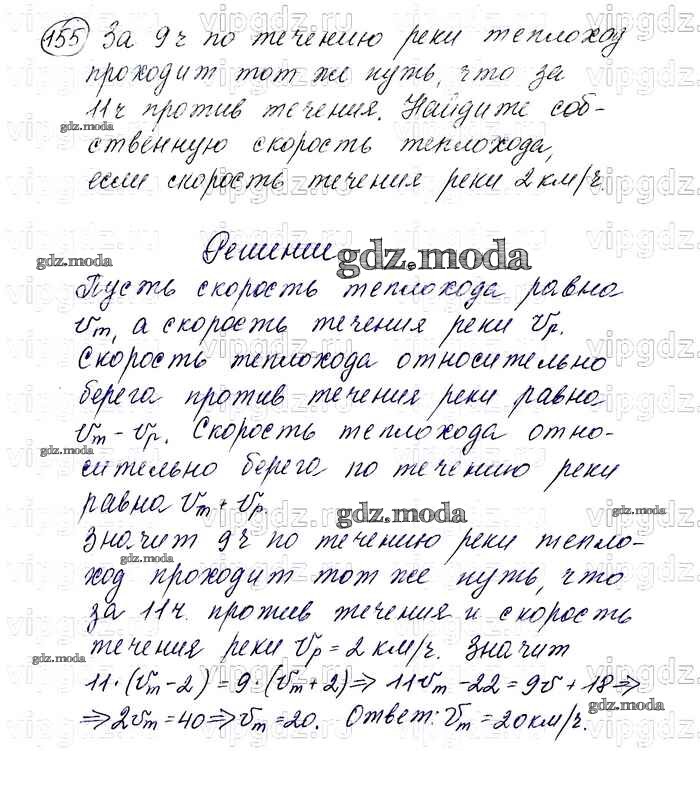 155 За 9 ч по течению реки теплоход
проходит тот же путь, что за
11 ч против течения. Найдите соб-
gdz.moda
ственную скорость теплохода,
если скорость течения реки 2 км/ч.
Решение
gdz.moda
gdz.moda
Пусть скорость теплохода равна
vт, а скорость течения реки vр.
Скорость теплохода относительно
берега против течения реки равна
vт - vр. Скорость теплохода отно-
gdz.moda
сительно берега по течению реки
равна vт + vр.
gdz.moda
gdz.moda
Значит 9ч по течению реки тепло-
gdz.moda
ход проходит тот же путь, что
за 11 ч. против течения и скорость
течения реки Vр = 2 км/ч. Значит
gdz.moda
11·(vт-2) = 9·(vт+2) ⇒ 11vт -22 = 9v + 18 ⇒
⇒ 2vт = 40 ⇒ vт = 20. Ответ: Vт = 20 км/ч.
gdz.moda